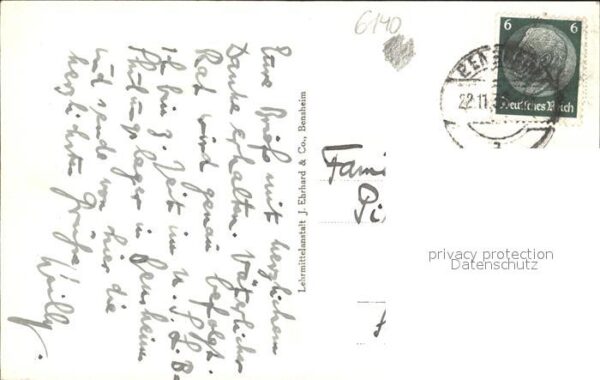 6140
6 6
Deutsches Reich
BEN
22.11.
Eure Brief mit herzlichem
Danke erhalten. Väterlicher
Rat wird genau befolgt.
Ich bin z. Zeit im N.S.L.B.
Schulungslager in Bensheim
und sende von hier die
herzlichsten Grüße
Willy.
Lehrmittelanstalt J. Ehrhard & Co., Bensheim
Fami
Pi
privacy protection
Datenschutz